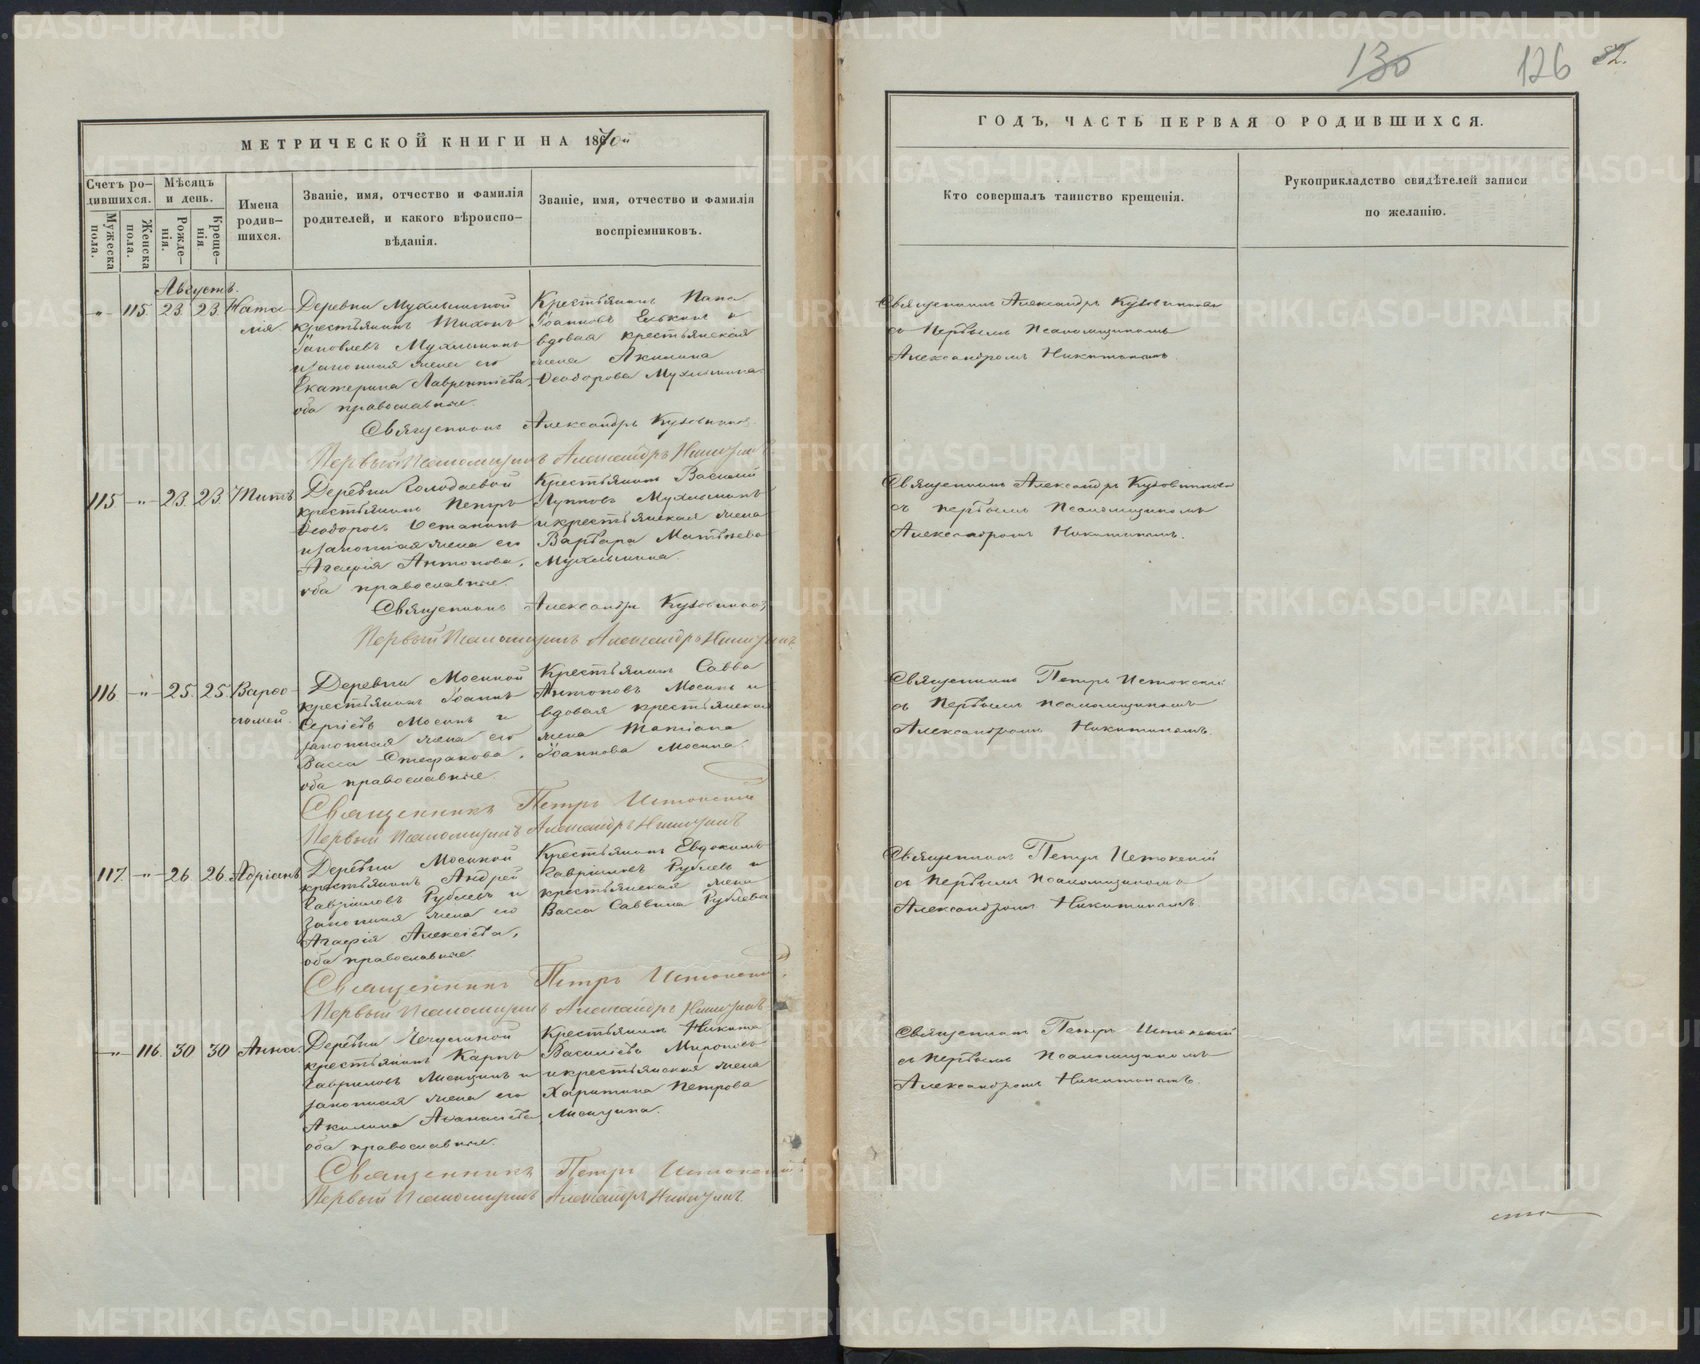 МЕТРИЧЕСКОЙ КНИГИ НА 1870й
Счетъ ро-
дившихся.
Мужеска
пола.
Женска
пола.
Мѣсяцъ
и день.
Рожде-
нія.
Креще-
нія.
Имена
родив-
шихся.
Званіе, имя, отчество и фамилія
родителей, и какого вѣроиспо-
вѣданія.
Званіе, имя, отчество и фамилія
воспріемниковъ.
Августъ.
-"- 115. 23. 23. Ната-
лія.
Деревни
крестьянинъ Тихонъ
Іаковлевъ
и законная жена его
Екатерина Лаврентіева,
оба православные.
Крестьянинъ
Іоанновъ и
вдовая крестьянская
жена Акилина
Ѳеодорова
Священникъ Александръ Кузовниковъ
Первый Псаломщикъ Александръ Никитинъ
115 -"- 23. 23. Титъ
Деревни Колодаевой
крестьянинъ Петръ
Ѳеодоровъ
и законная жена его
Агафія Антонова,
оба православные.
Крестьянинъ Василій
и крестьянская жена
Варвара Матвѣева
Священникъ Александръ Кузовниковъ
Первый Псаломщикъ Александръ Никитинъ
116 -"- 25. 25. Варѳо-
ломей.
Деревни Мосиной
крестьянинъ Іоаннъ
Сергіевъ Мосинъ и
законная жена его
Васса Стефанова,
оба православные.
Крестьянинъ Савва
Антоновъ Мосинъ и
вдовая крестьянская
жена Татіана
Іоаннова Мосина.
Священникъ Петръ Истокскій
Первый Псаломщикъ Александръ Никитинъ
117. -"- 26. 26. Адріанъ
Деревни Мосиной
крестьянинъ Андрей
Гавріиловъ Рублевъ и
законная жена его
Агафія Алексіева,
оба православные
Крестьянинъ Евдокимъ
Гавріиловъ Рублевъ и
крестьянская жена
Васса Саввина Рублева
Священникъ Петръ Истокскій
Первый Псаломщикъ Александръ Никитинъ
-"- 116. 30 30 Анна.
Деревни
крестьянинъ Карпъ
Гавриловъ Лисицинъ и
законная жена его
Акилина Аѳанасіева
оба православные.
Крестьянинъ Никита
Василіевъ
и крестьянская жена
Харитина Петрова
Лисицина.
Священникъ Петръ Истокскій
Первый Псаломщикъ Александръ Никитинъ
130
126
82.
ГОДЪ, ЧАСТЬ ПЕРВАЯ О РОДИВШИХСЯ.
Кто совершалъ таинство крещенія.
Рукоприкладство свидѣтелей записи
по желанію.
Священникъ Александръ Кузовниковъ
съ Первымъ Псаломщикомъ
Александромъ Никитинымъ.
Священникъ Александръ Кузовниковъ
съ первымъ Псаломщикомъ
Александромъ Никитинымъ.
Священникъ Петръ Истокскій
съ Первымъ псаломщикомъ
Александромъ Никитинымъ.
Священникъ Петръ Истокскій
съ Первымъ Псаломщикомъ
Александромъ Никитинымъ.
Священникъ Петръ Истокскій
съ Первымъ Псаломщикомъ
Александромъ Никитинымъ.
METRIKI.GASO-URAL.RU